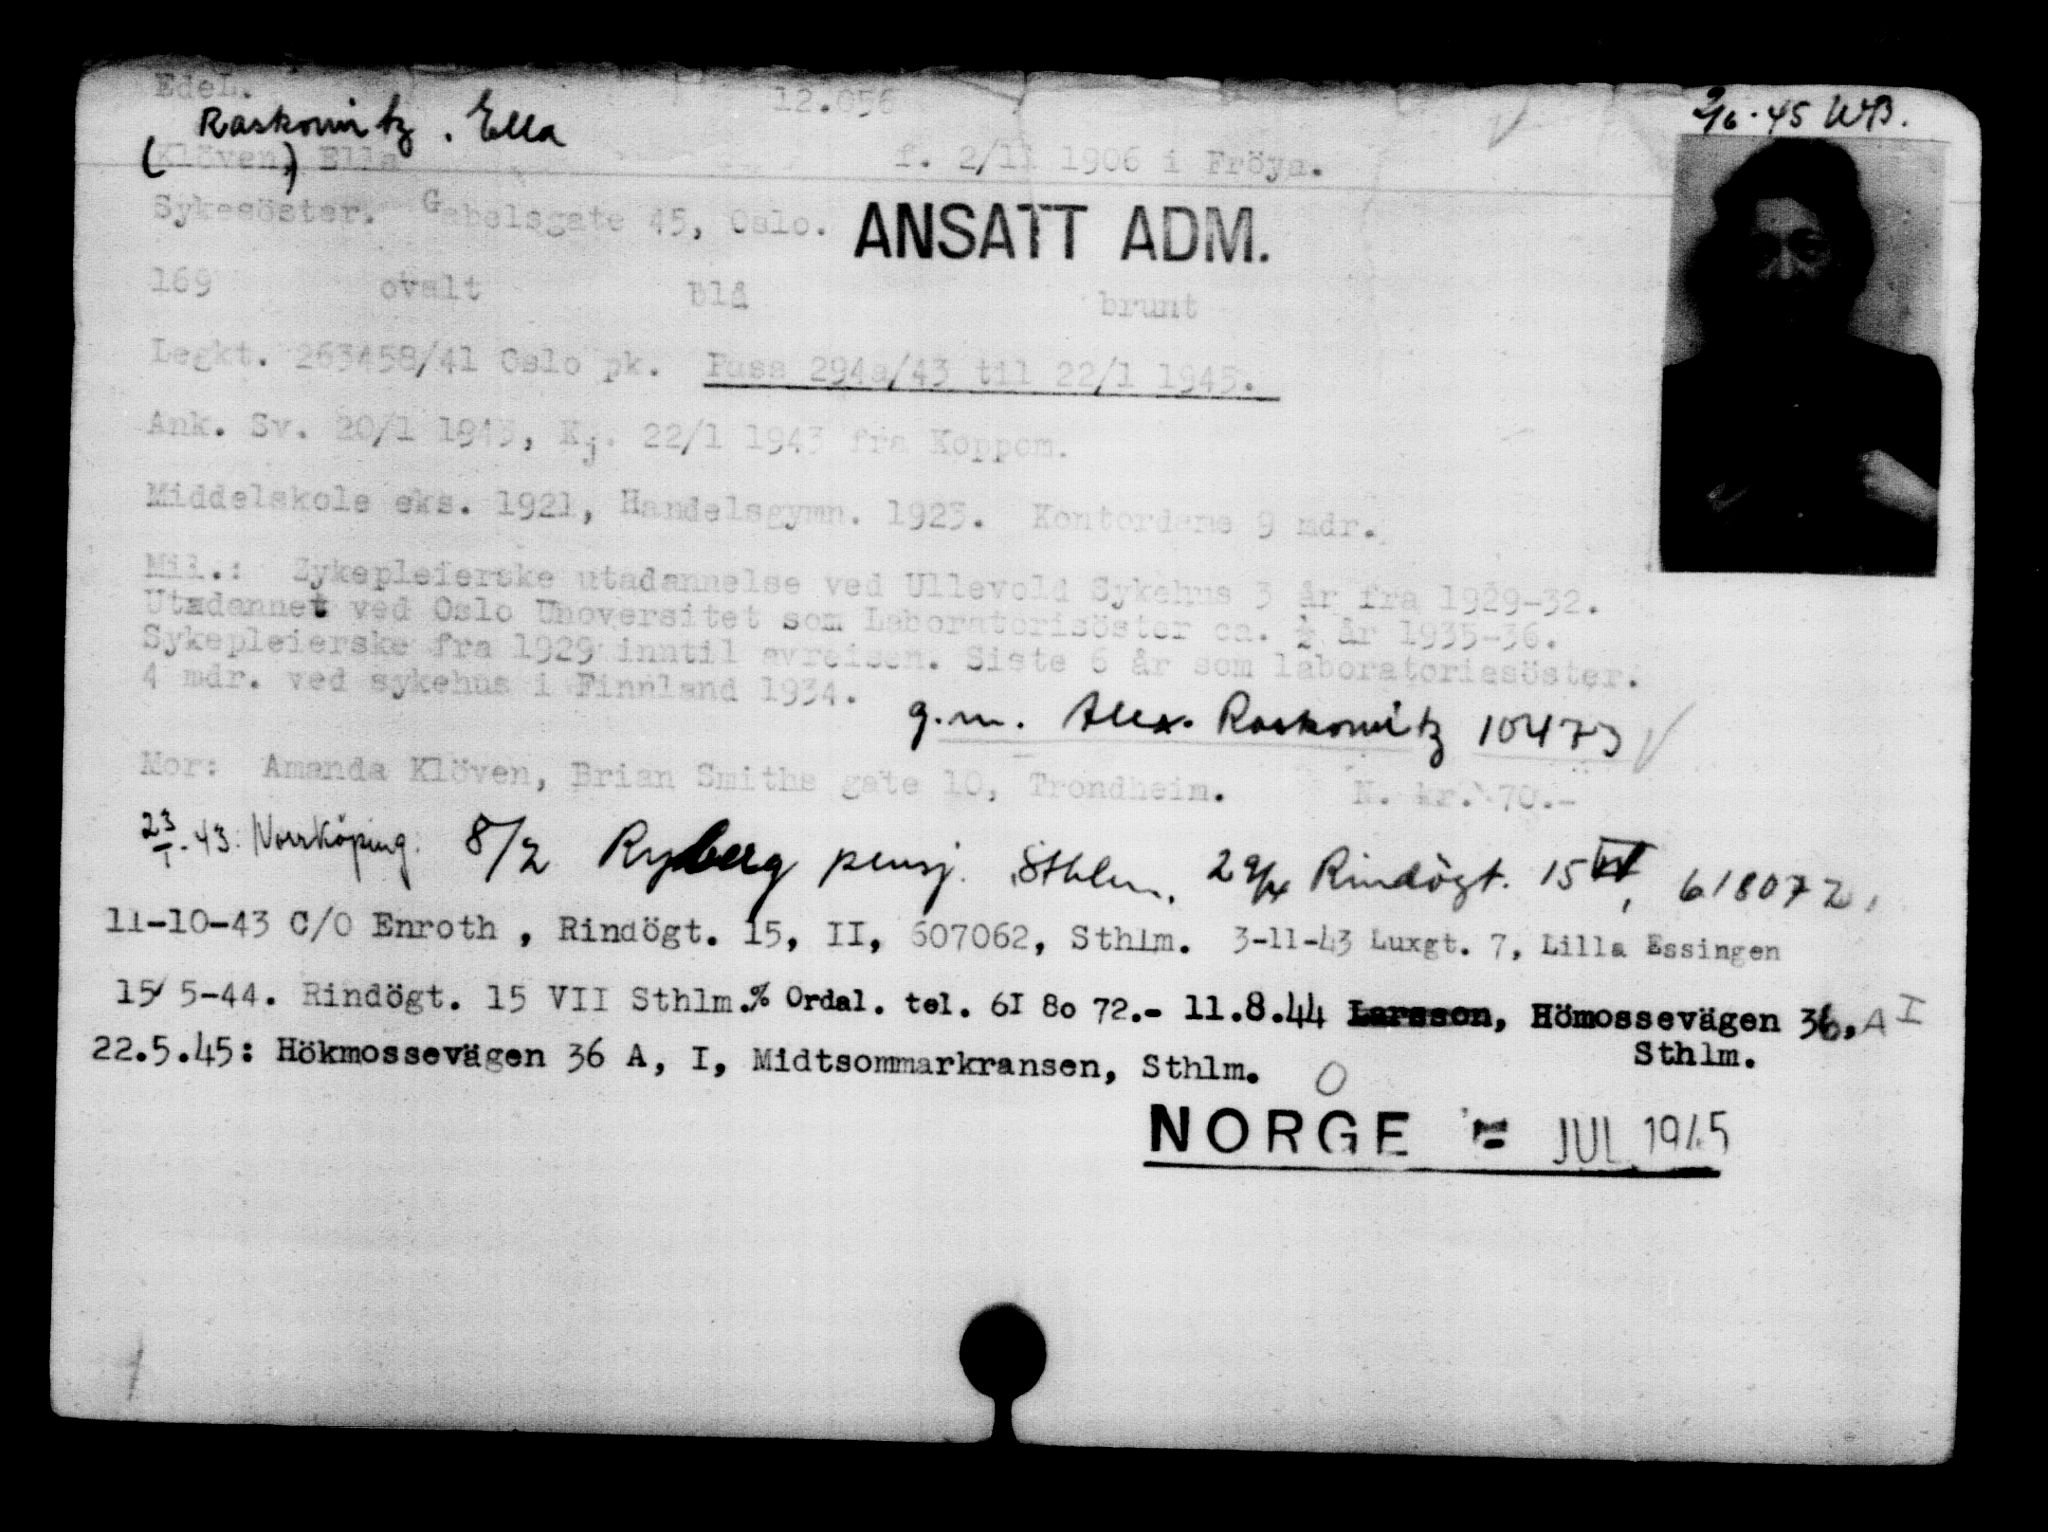 EdeL. 12.056 2/6.45 WB.
Raskowitz. Ella
(Klöven,) Ella f. 2/11 1906 i Fröya.
Sykesöster. Gabelsgate 45, Oslo. ANSATT ADM.
169 ovalt blå brunt
Legkt. 263458/41 Oslo pk. Pass 294a/43 til 22/1 1945.
Ank. Sv. 20/1 1943, Kj. 22/1 1943 fra Koppom.
Middelskole eks. 1921, Handelsgymn. 1923. Kontordame 9 mdr.
Mil.: Sykepleierske utadannelse ved Ullevold Sykehus 3 år fra 1929-32.
Utadannet ved Oslo Unoversitet som Laboratorisöster ca. ½ år 1935-36.
Sykepleierske fra 1929 inntil avreisen. Siste 6 år som laboratoriesöster.
4 mdr. ved sykehus i Finnland 1934.
g.m. Alex. Raskowitz 10473
Mor: Amanda Klöven, Brian Smiths gate 10, Trondheim. N. kr. 70.-
23/1.43: Norrköping. 8/2 Ryberg pensj. Sthlm. 29/4 Rindögt. 15, 618072,
11-10-43 C/O Enroth, Rindögt. 15, II, 607062, Sthlm. 3-11-43 Luxgt. 7, Lilla Essingen
15/5-44. Rindögt. 15 VII Sthlm.% Ordal. tel. 61 80 72.- 11.8.44 Larsson, Hömossevägen 36, A I
Sthlm.
22.5.45: Hökmossevägen 36 A, I, Midtsommarkransen, Sthlm. O
NORGE JUL 1945